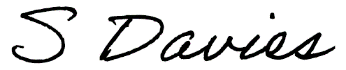 S Davies